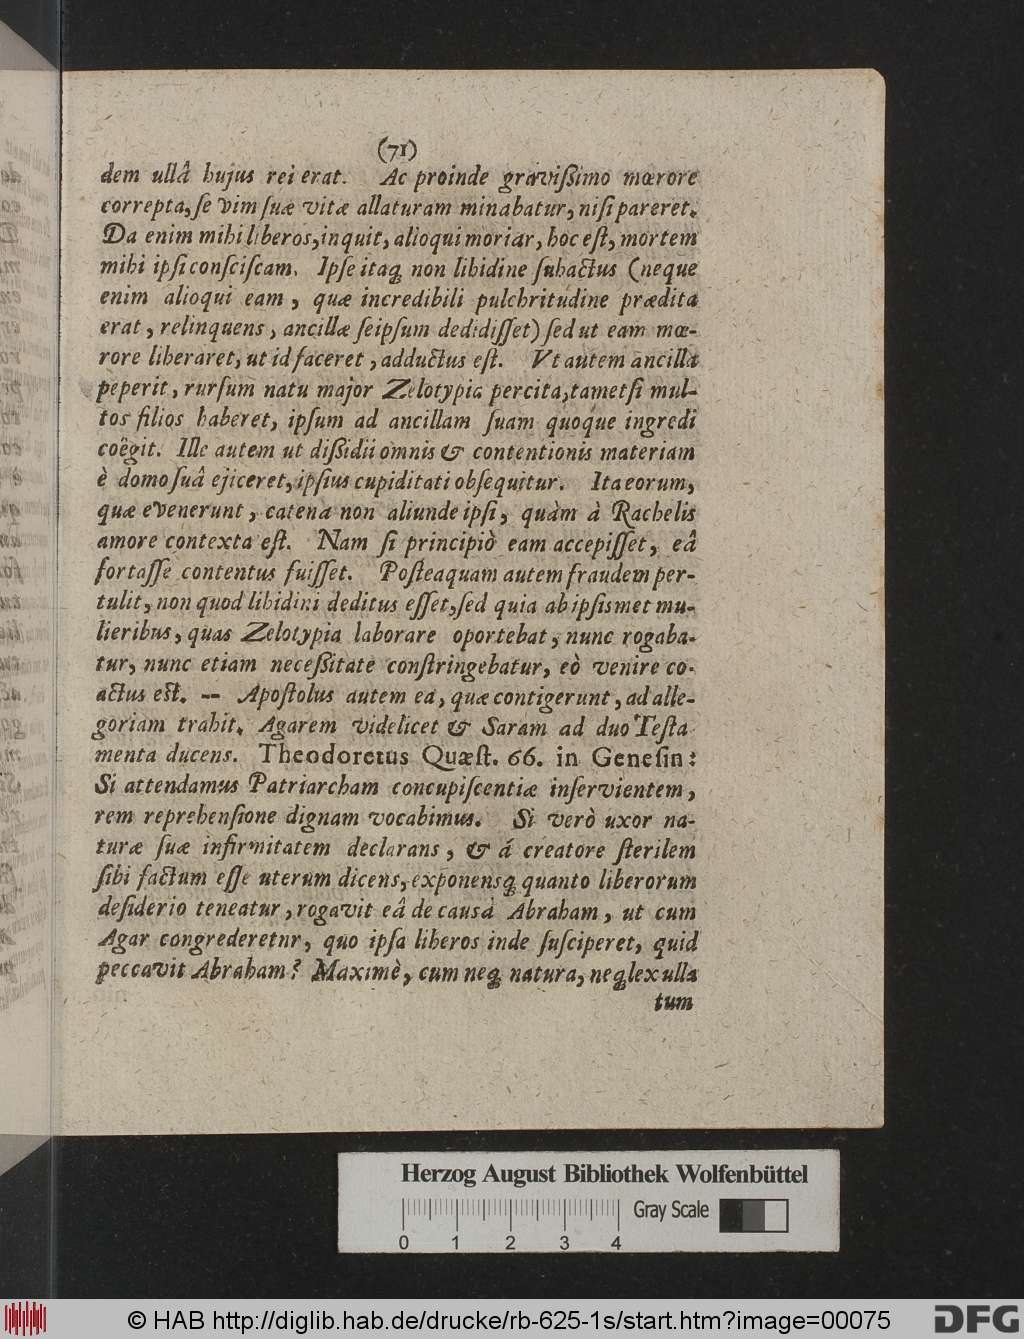 (71)
dem ullâ hujus rei erat. Ac proinde gravißimo mœrore
correpta, ſe vim ſuæ vitæ allaturam minabatur, niſi pareret.
Da enim mihi liberos, inquit, alioqui moriar, hoc eſt, mortem
mihi ipſi conſciſcam. Ipſe itaq; non libidine ſubactus (neque
enim alioqui eam, quæ incredibili pulchritudine prædita
erat, relinquens, ancillæ ſeipſum dedidiſſet) ſed ut eam mœ-
rore liberaret, ut id faceret, adductus eſt. Vt autem ancilla
peperit, rurſum natu major Zelotypia percita, tametſi mul-
tos filios haberet, ipſum ad ancillam ſuam quoque ingredi
coëgit. Ille autem ut dißidii omnis & contentionis materiam
è domo ſuâ ejiceret, ipſius cupiditati obſequitur. Ita eorum,
quæ evenerunt, catena non aliunde ipſi, quàm à Rachelis
amore contexta eſt. Nam ſi principiò eam accepiſſet, eâ
fortaſſe contentus fuiſſet. Poſteaquam autem fraudem per-
tulit, non quod libidini deditus eſſet, ſed quia ab ipſismet mu-
lieribus, quas Zelotypia laborare oportebat, nunc rogaba-
tur, nunc etiam neceßitate conſtringebatur, eò venire co-
actus eſt. -- Apoſtolus autem ea, quæ contigerunt, ad alle-
goriam trahit. Agarem videlicet & Saram ad duo Teſta
menta ducens. Theodoretus Quæſt. 66. in Geneſin:
Si attendamus Patriarcham concupiſcentiæ inſervientem,
rem reprehenſione dignam vocabimus. Si verò uxor na-
turæ ſuæ infirmitatem declarans, & á creatore ſterilem
ſibi factum eſſe uterum dicens, exponensq; quanto liberorum
deſiderio teneatur, rogavit eâ de causâ Abraham, ut cum
Agar congrederetnr, quo ipſa liberos inde ſuſciperet, quid
peccavit Abraham? Maximè, cum neq; natura, neq; lex ulla
tum
Herzog August Bibliothek Wolfenbüttel
Gray Scale
0 1 2 3 4
© HAB http://diglib.hab.de/drucke/rb-625-1s/start.htm?image=00075
DFG